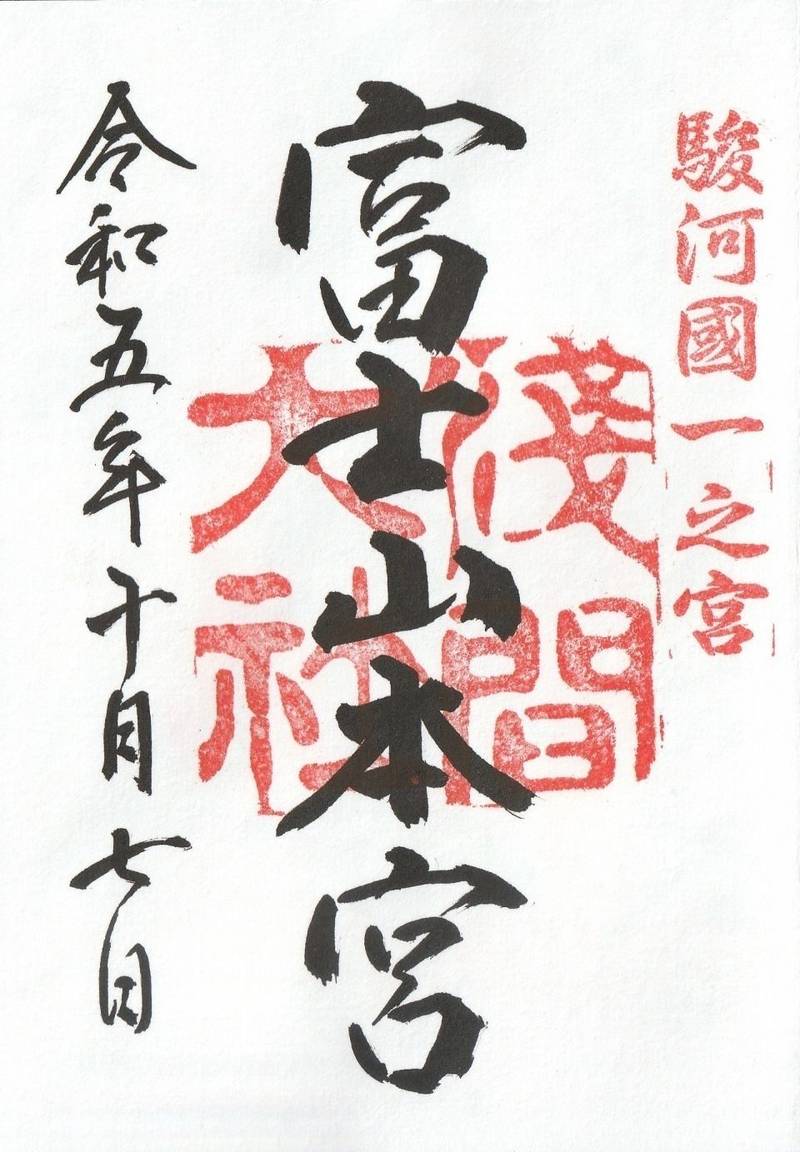 駿河國一之宮
富士山本宮
淺間
大社
令和五年十月七日